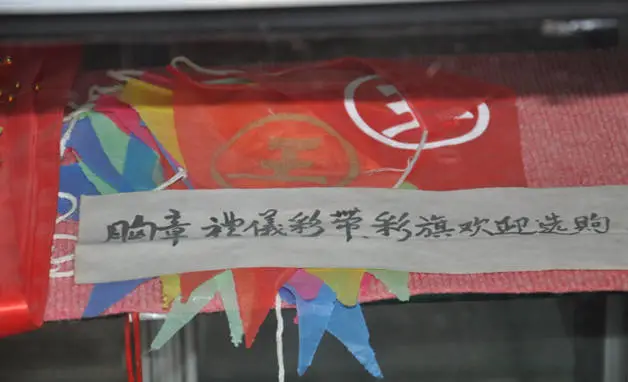 胸章禮儀彩带、彩旗欢迎选购